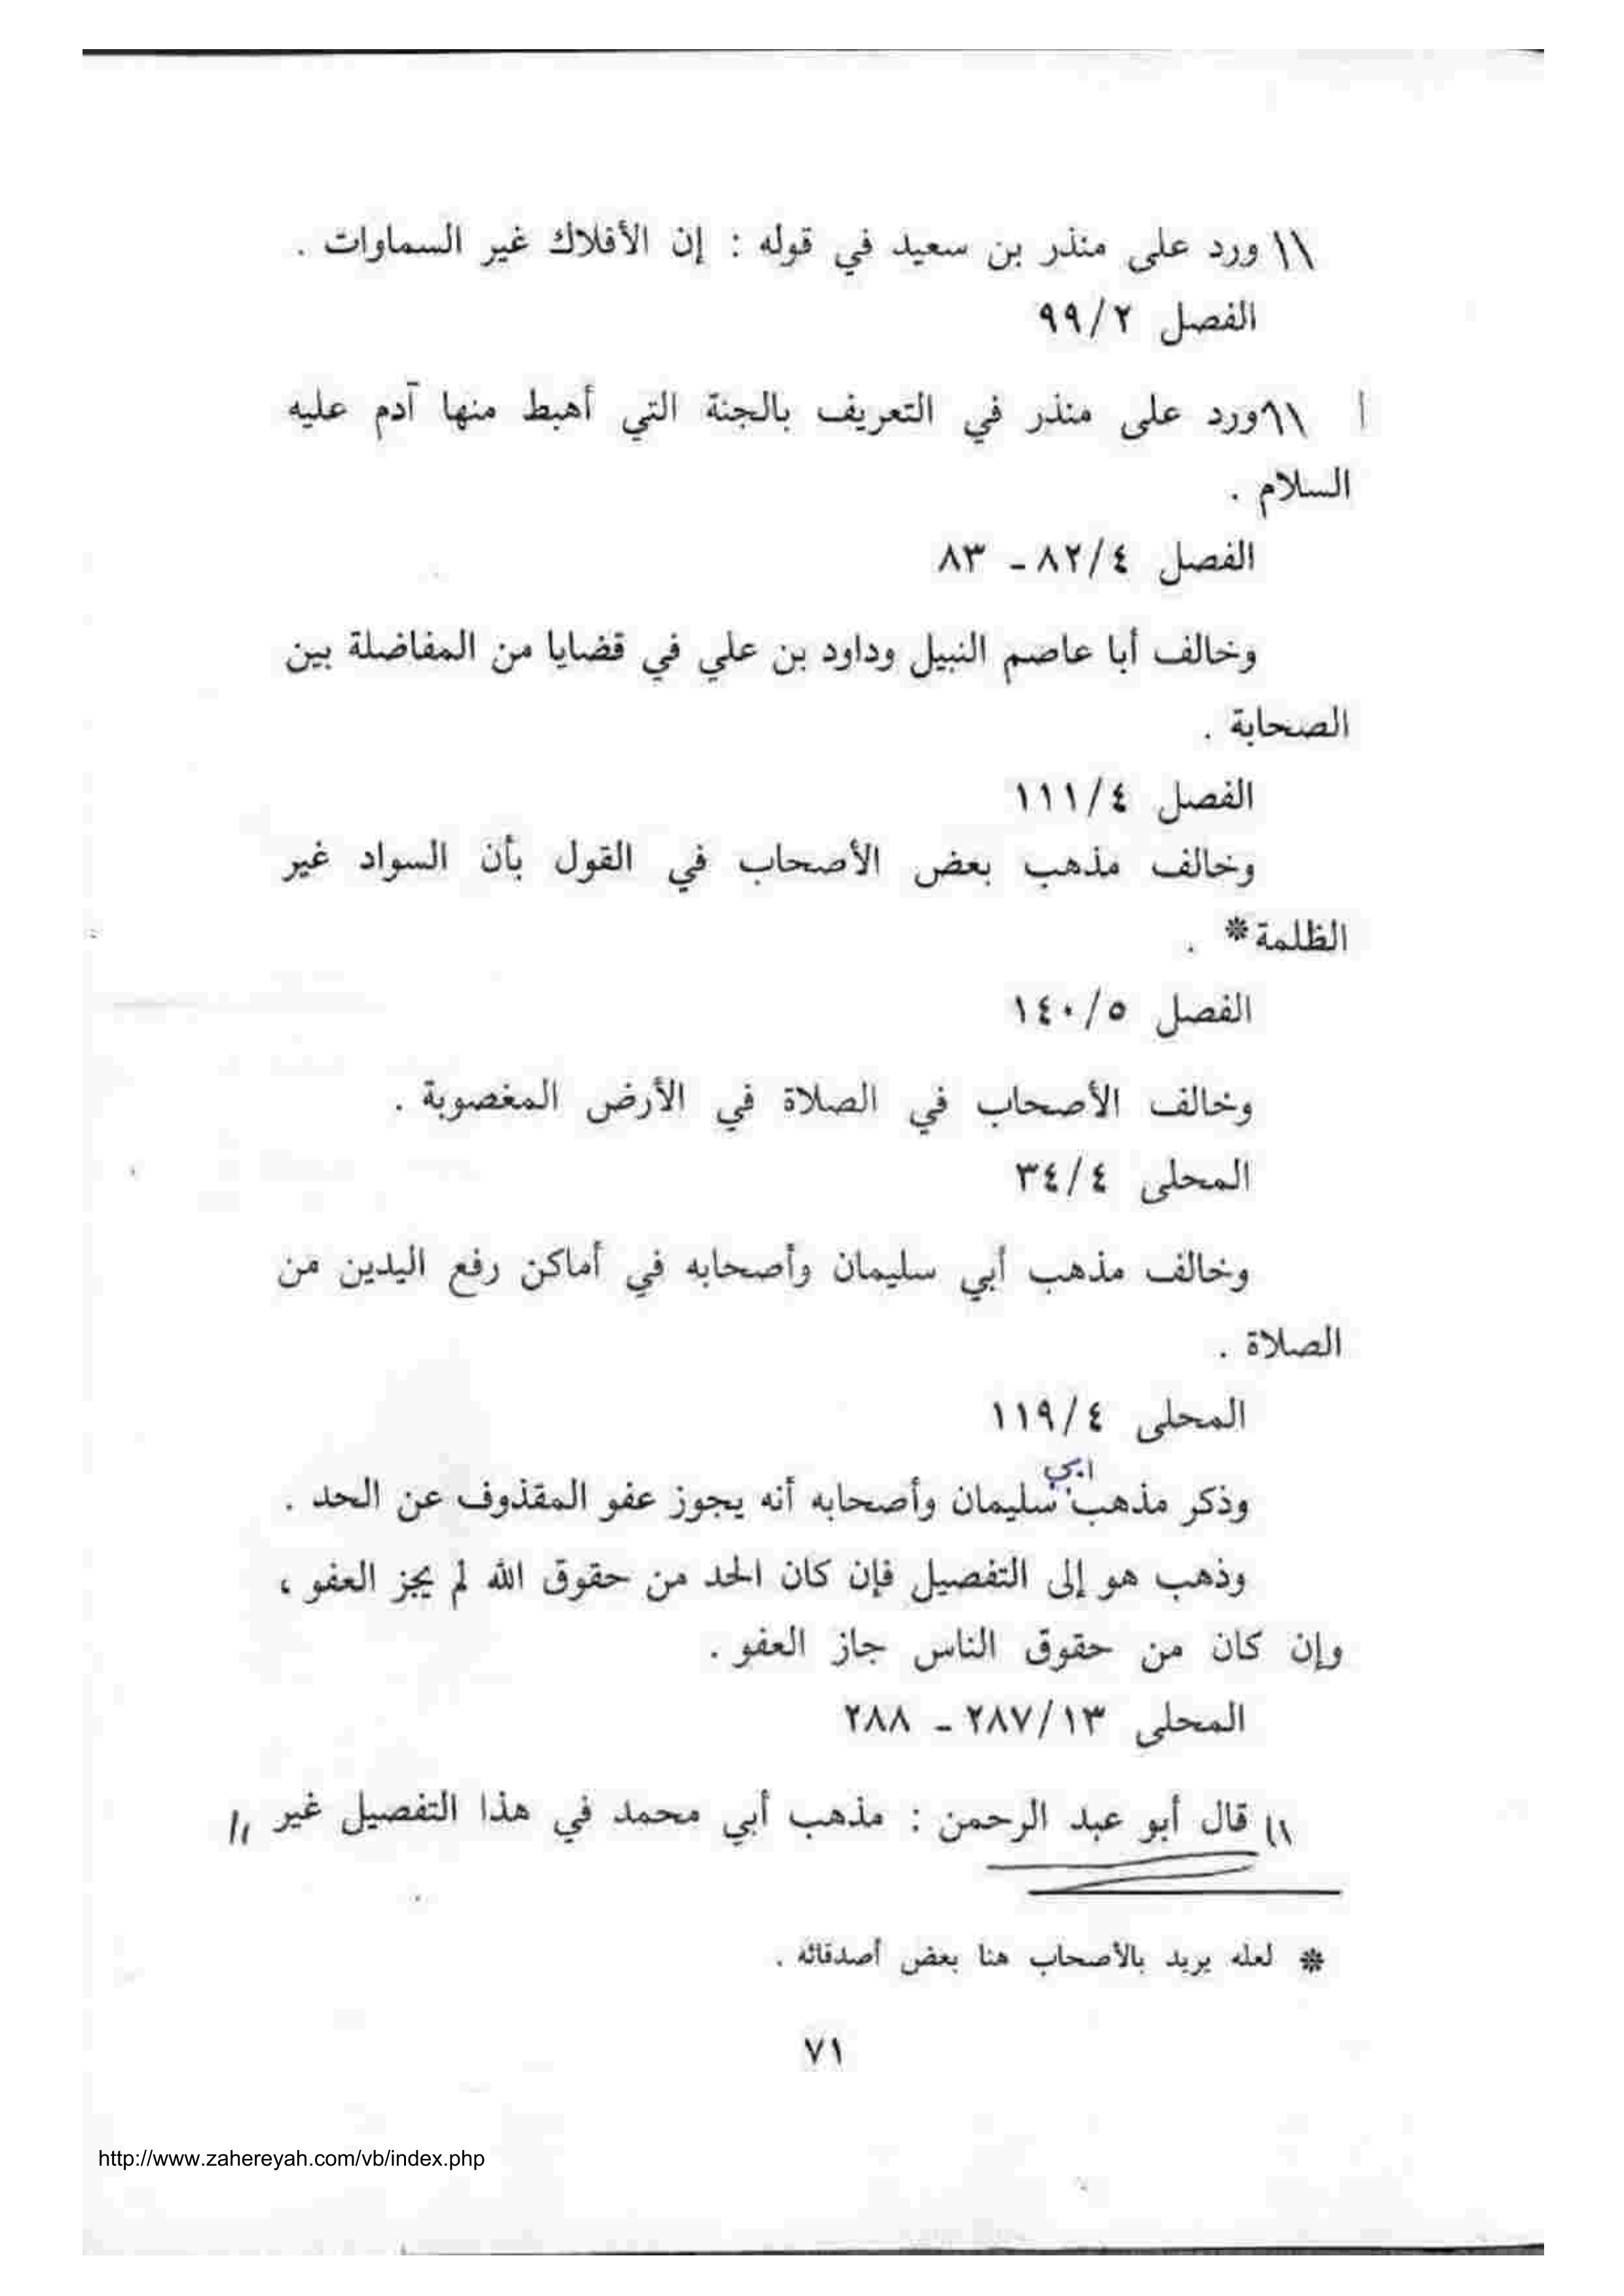 ورد على منذر بن سعيد في قوله : إن الأفلاك غير السماوات .
الفصل ٢/٩٩
ورد على منذر في التعريف بالجنة التي أهبط منها آدم عليه
السلام .
الفصل ٤/٨٢ - ٨٣
وخالف أبا عاصم النبيل وداود بن علي في قضايا من المفاضلة بين
الصحابة .
الفصل ٤/١١١
وخالف مذهب بعض الأصحاب في القول بأن السواد غير
الظلمة* .
الفصل ٥/١٤٠
وخالف الأصحاب في الصلاة في الأرض المغصوبة .
المحلى ٤/٣٤
وخالف مذهب أبي سليمان وأصحابه في أماكن رفع اليدين من
الصلاة .
المحلى ٤/١١٩
ابي
وذكر مذهب سليمان وأصحابه أنه يجوز عفو المقذوف عن الحد .
وذهب هو إلى التفصيل فإن كان الحد من حقوق الله لم يجز العفو ،
وإن كان من حقوق الناس جاز العفو .
المحلى ١٣/٢٨٧ - ٢٨٨
قال أبو عبد الرحمن : مذهب أبي محمد في هذا التفصيل غير
* لعله يريد بالأصحاب هنا بعض أصدقائه .
٧١
http://www.zahereyah.com/vb/index.php